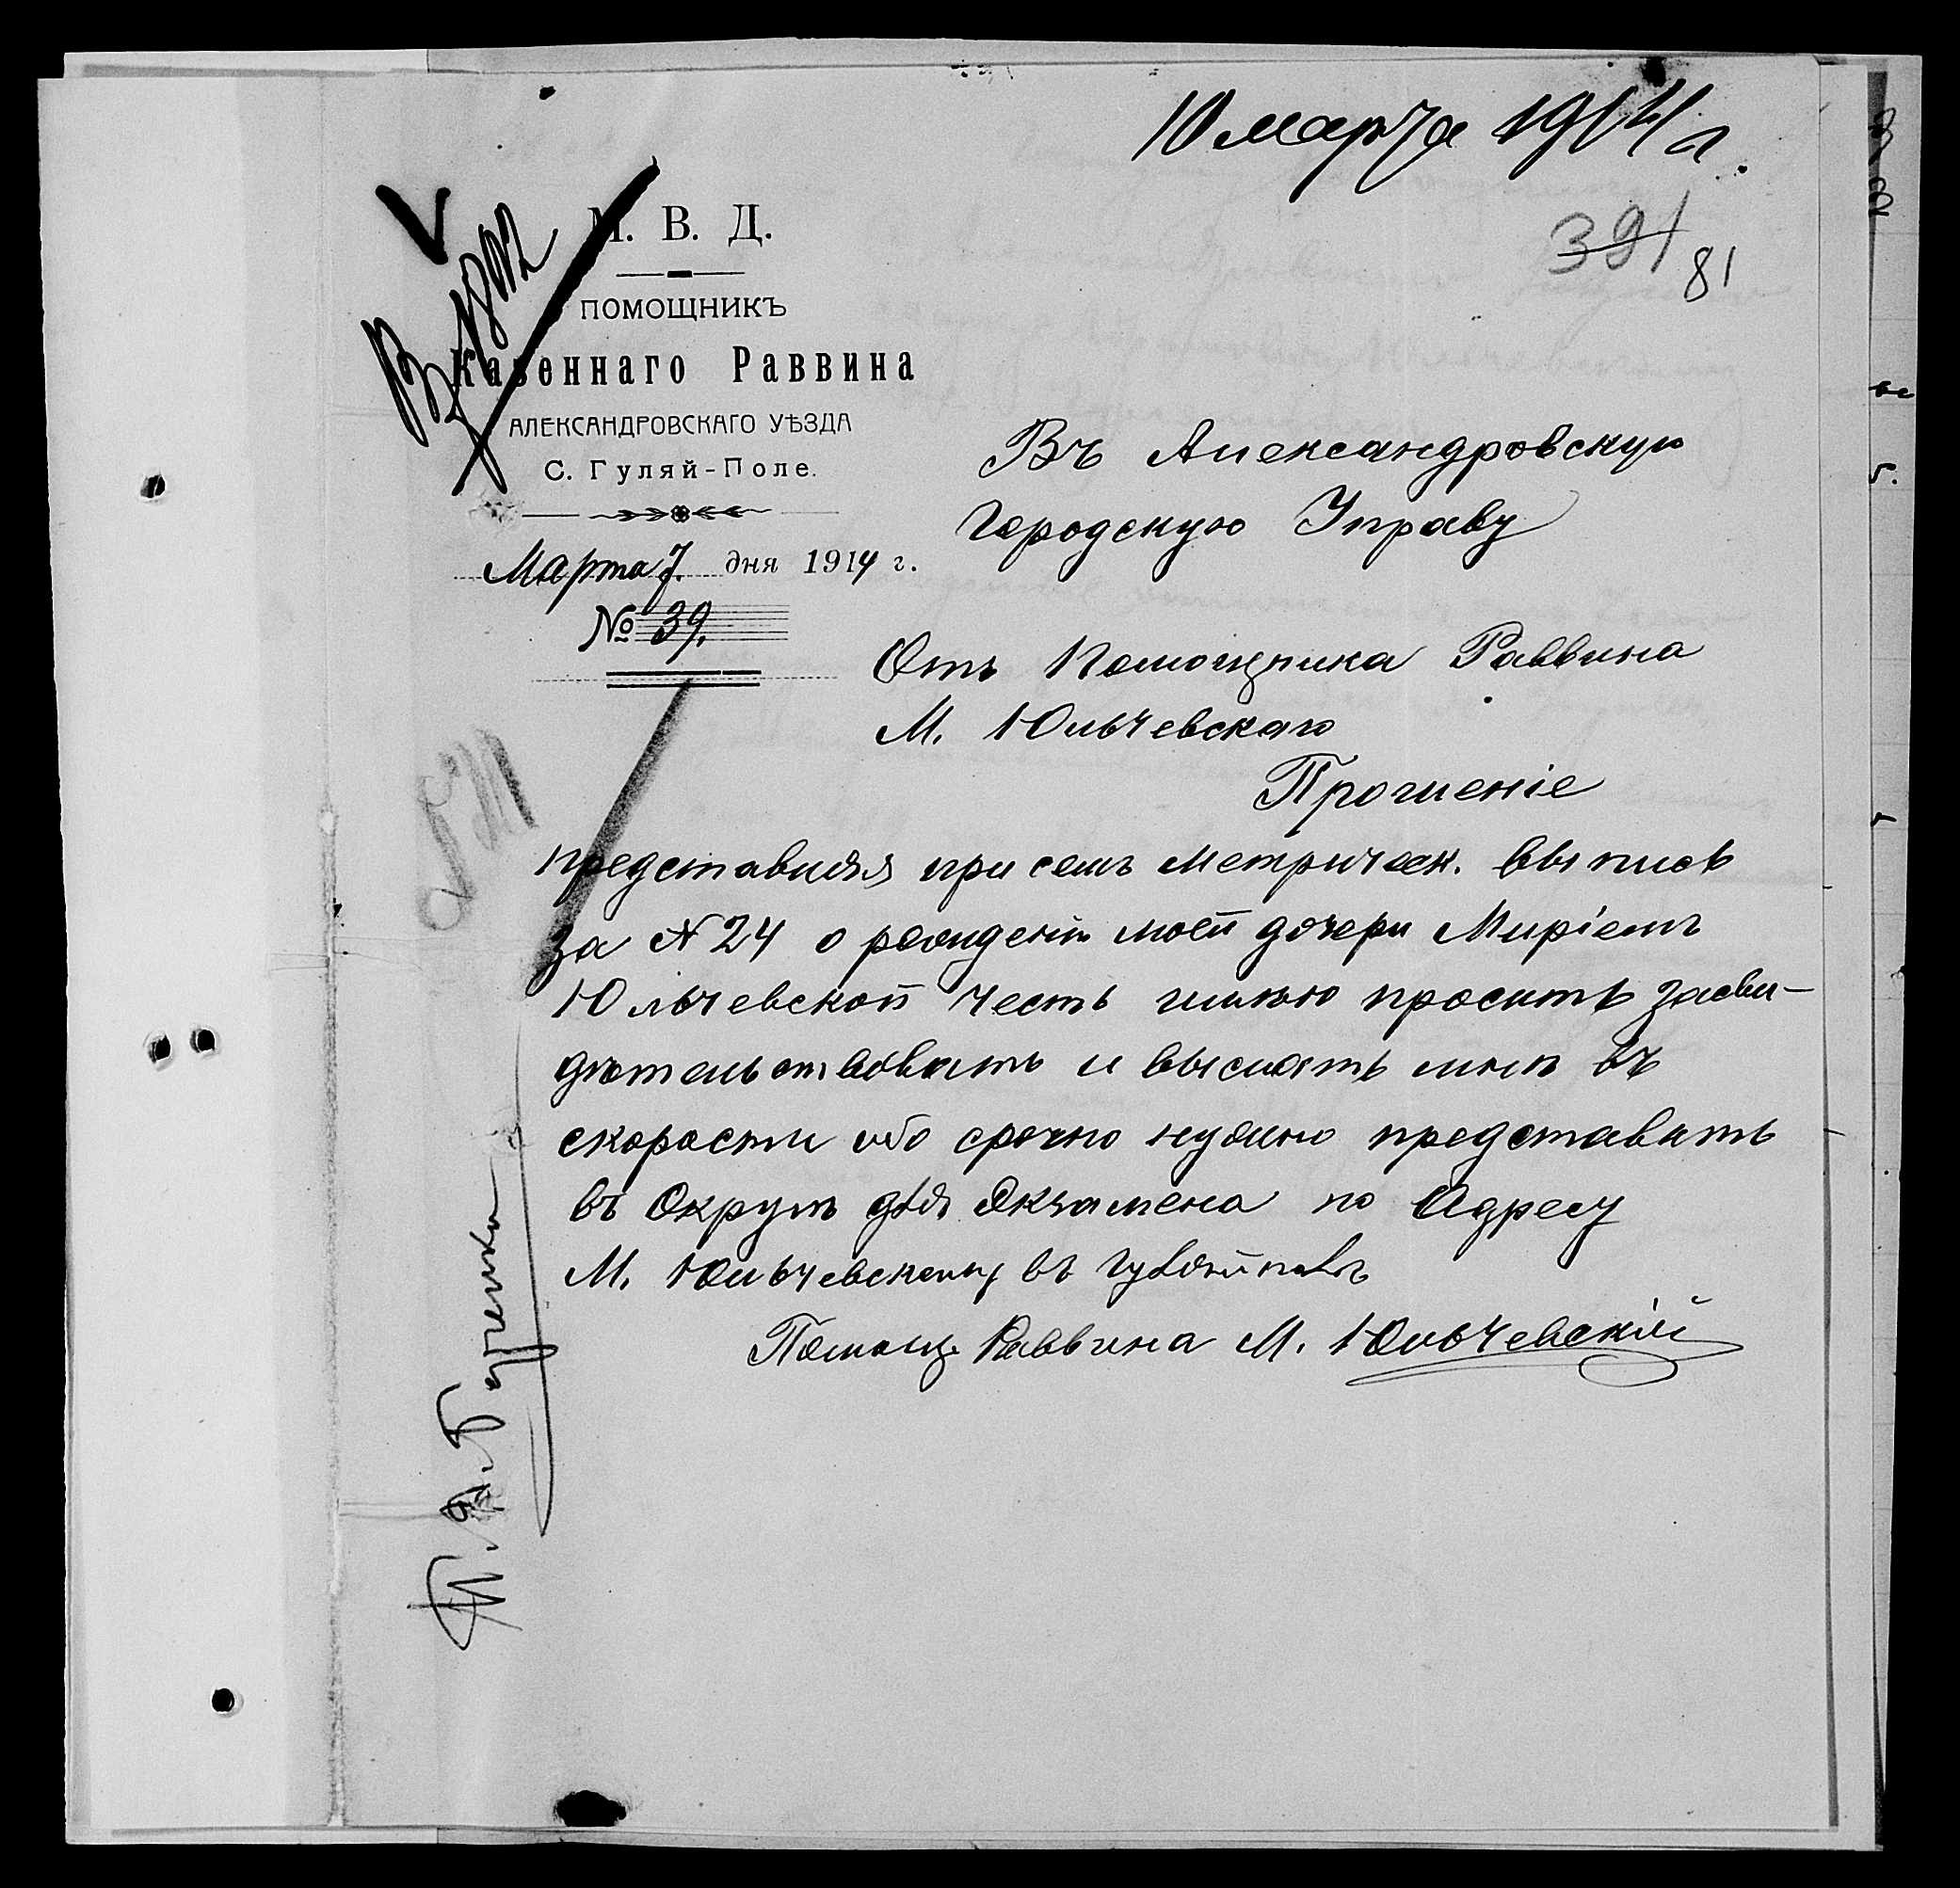 10 марта 1914 г.
391 81
М. В. Д.
ПОМОЩНИКЪ
Казеннаго Раввина
АЛЕКСАНДРОВСКАГО УѢЗДА
С. Гуляй-Поле.
Марта 7. дня 1914 г.
№ 39.
Въ Александровскую
Городскую Управу
Отъ Помощника Раввина
М. Юльчевскаго
Прошеніе
представляя при семъ метрическ. выпись
за № 24 о рожденіи моей дочери Миріемъ
Юльчевской честь имѣю просить засви-
дѣтельствовать и выслать мнѣ въ
скорости ибо срочно нужно представить
въ Округъ для Экзамена по Адресу
М. Юльчевскому въ Гуляйполѣ
Помощ. Раввина М. Юльчевскій